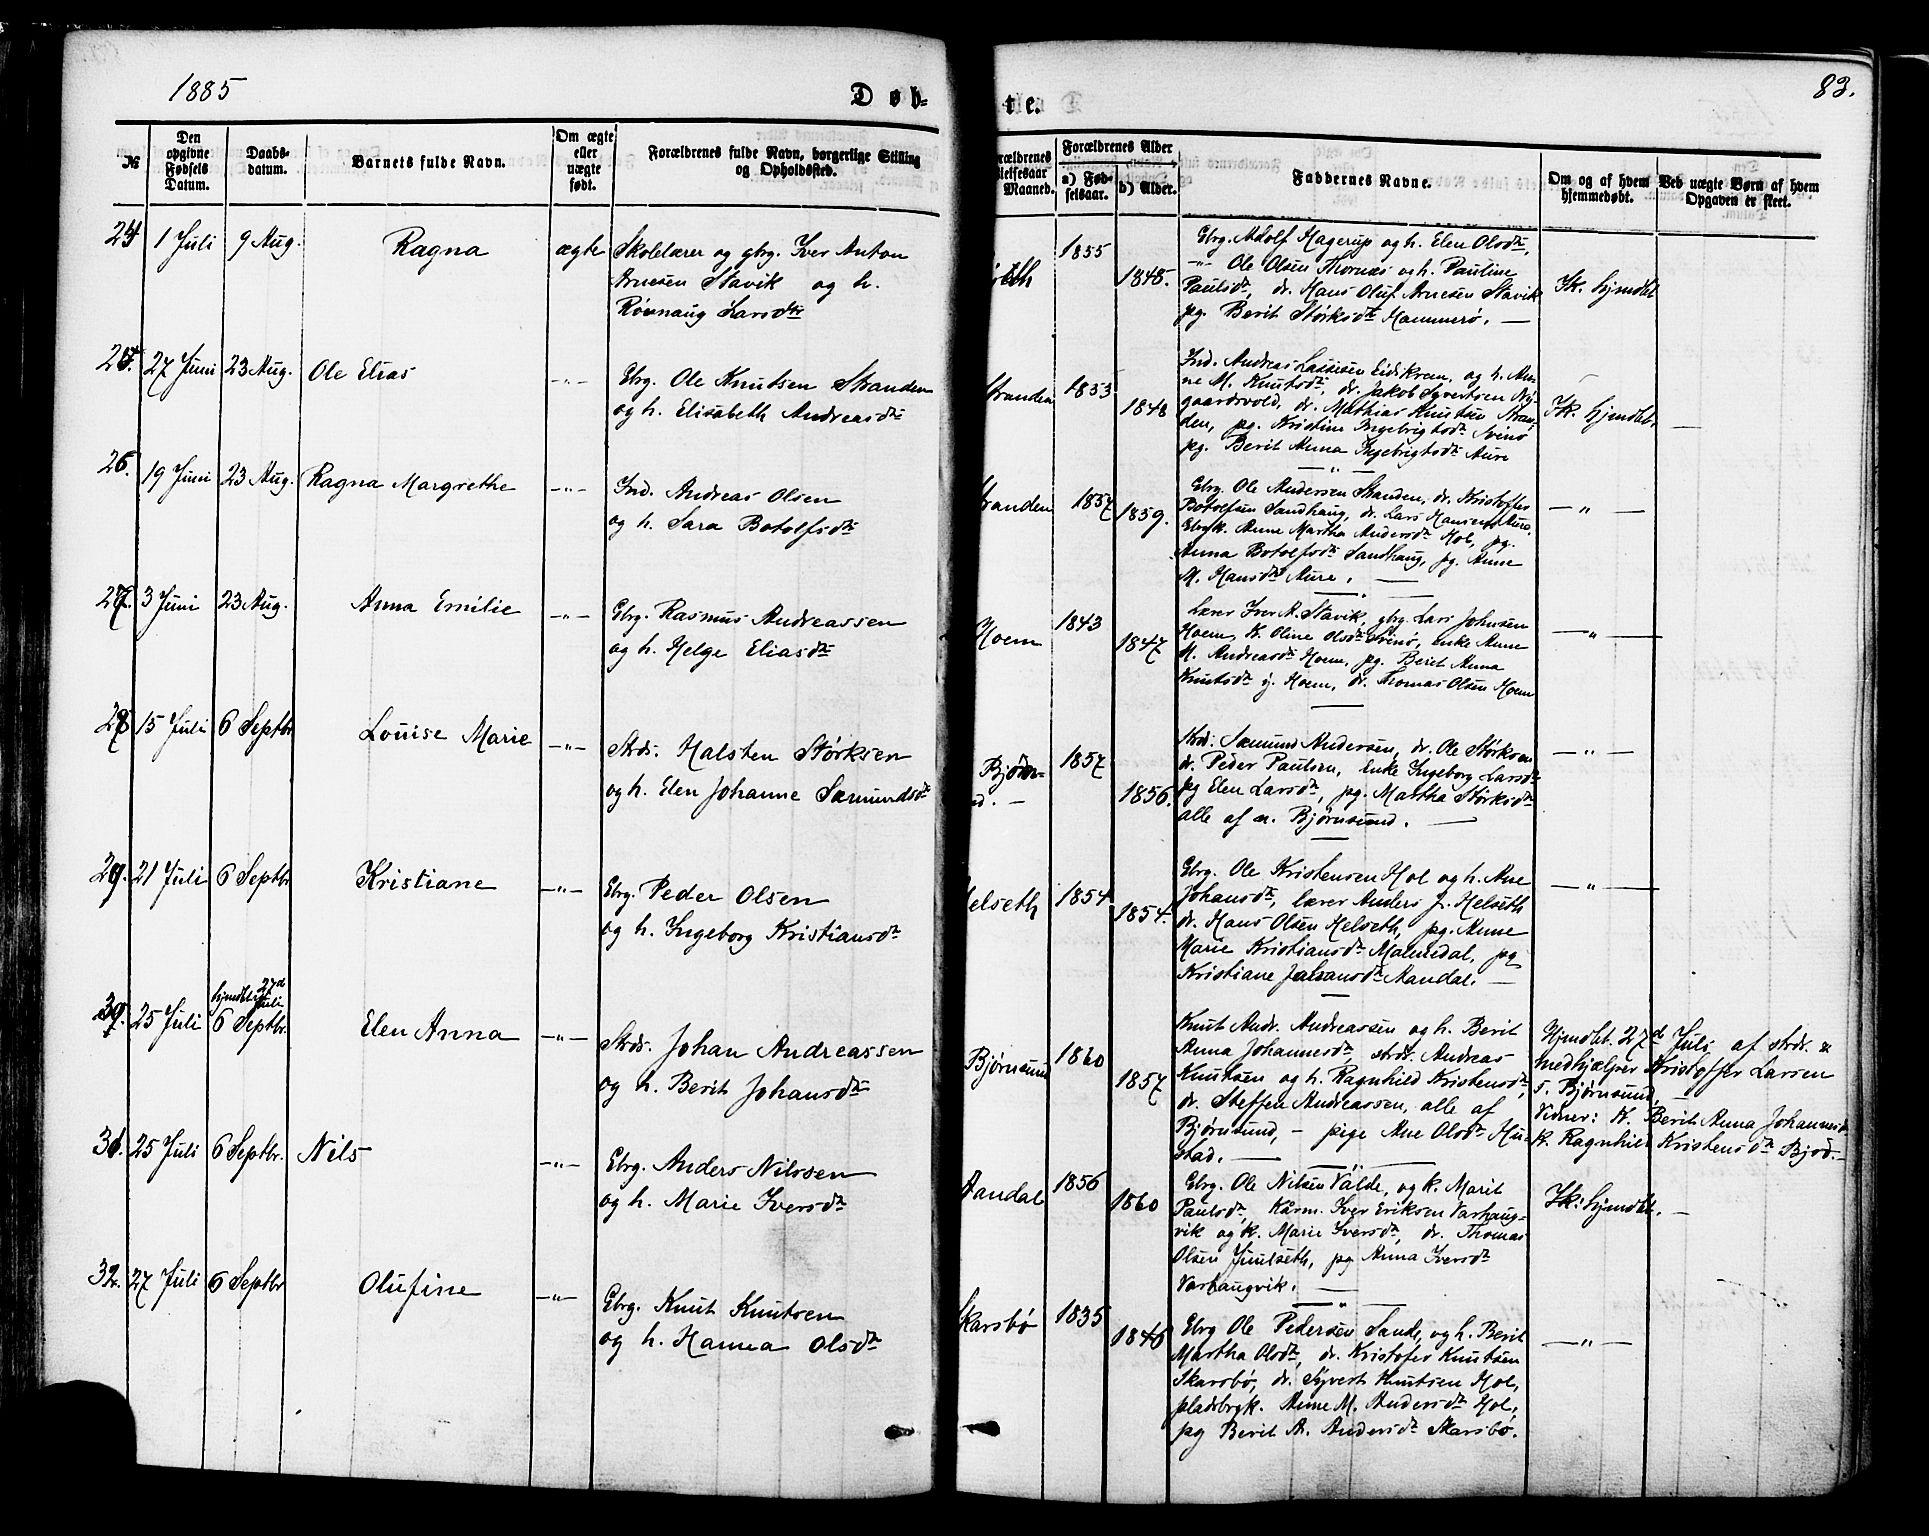 1885
Døb-
te.
83.
№
Den opgivne Fødsels Datum.
Daabs-datum.
Barnets fulde Navn.
Om ægte eller uægte født.
Forældrenes fulde Navn, borgerlige Stilling og Opholdssted.
Forældrenes Alder
a) Fød-selsaar.
b) Alder.
Faddernes Navne.
Om og af hvem hjemmedøbt.
Ved uægte Børn af hvem Opgaven er skeet.
24 1 Juli 9 Aug. Ragna ægte
Skolelærer og gbrg. Iver Anton
Arnesen Stavik og h.
Røvnaug Larsdtr
1855
1848.
Gbrg. Adolf Hagerup og h. Elen Olsdtr,
-"- Ole Olsen Thornæs og h. Pauline
Paulsdtr, dr. Hans Oluf Arnesen Stavik
pg. Berit Størksdtr Hammerø. —
Ik. hjmdbt
25. 27 Juni 23 Aug. Ole Elias -"-
Gbrg. Ole Knutsen Stranden
og h. Elisabeth Andreasdtr
Stranden 1853
1848
Ind. Andreas Lassesen Eidikrem, og h. An-
ne M. Knutsdtr, dr. Jakob Syvertsen Ny-
gaardsvold, dr. Mathias Knutsen Stran-
den, pg. Kristine Ingebrigtsdtr Svinø
pg. Berit Anna Ingebrigtsdtr Aure
Ik. hjmdbt. —
26. 19 Juni 23 Aug. Ragna Margrethe -"-
Ind. Andreas Olsen
og h. Sara Botolfsdtr
Stranden 1857
1859.
Gbrg. Ole Andersen Stranden, dr. Kristoffer
Botolfsen Sandhaug, dr. Lars Hansen Aure,
Gbrgk. Anne Martha Andersdtr Hol, pg.
Anna Botolfsdtr Sandhaug, pg. Anne
M. Hansdtr Aure. —
— " —
27. 3 Juni 23 Aug. Anna Emilie -"-
Gbrg. Rasmus Andreassen
og h. Helge Eliasdtr
Hoem 1843
1847
Lærer Iver A. Stavik, gbrg. Lars Johnsen
Hoem, k. Oline Olsdtr Svinø, enke Anne
M. Andreasdtr Hoem, pg. Berit Anna
Knutsdtr y. Hoem, dr. Thomas Olsen Hoem
— " —
28 15 Juli 6 Septbr Louise Marie -"-
Strds. Halsten Størksen
og h. Elen Johanne Sæmundsdtr
Bjørn-
1857
1856.
Strds. Sæmund Andersen, dr. Ole Størksen
dr. Peder Paulsen, enke Ingeborg Larsdtr
pg Elen Larsdtr, pg. Martha Størksdtr
alle af n. Bjørnsund. —
— " —
29. 21 Juli 6 Septbr Kristiane -"-
Gbrg. Peder Olsen
og h. Ingeborg Kristiansdtr
Helseth 1854
1854.
Gbrg. Ole Kristensen Hol og h. Ane
Johansdtr, lærer Anders J. Helseth
dr. Hans Olsen Helseth, pg. Anne
Marie Kristiansdtr Malmedal, pg
Kristiane Johansdtr Mandal. —
— " —
30. 25 Juli hjmdbt 27d Juli
6 Septbr. Elen Anna -"-
Strds. Johan Andreassen
og h. Berit Johansdtr
Bjørnsund 1860
1857
Knut Andr. Andreassen og h. Berit
Anna Johannesdtr, strds. Andreas
Knutsen og h. Ragnhild Kristensdtr,
dr. Steffen Andreassen, alle af
Bjørnsund, — pige Ane Olsdtr Hu-
stad. —
Hjmdbt. 27d Juli, af strds. &
medhjælper Kristoffer Larsen
s. Bjørnsund, —
Vidner: k. Berit Anna Johannesdtr
k. Ragnhild Kristensdtr Bjsd. —
31. 25 Juli 6 Septbr. Nils -"-
Gbrg. Anders Nilssen
og h. Marie Iversdtr
1856
1860
Gbrg. Ole Nilsen Valde, og k. Marit
Paulsdtr, Kårm. Iver Eriksen Varhaug-
vik og k. Marie Iversdtr, dr. Thomas
Olsen Juulseth, pg Anna Iversdtr
Varhaugvik. —
Ik. hjmdbt. —
32. 27 Juli 6 Septbr Olufine -"-
Gbrg. Knut Knutsen
og h. Hanna Olsdtr
Skarsbø 1835
1846
Gbrg Ole Pedersen Sande, og h. Berit
Martha Olsdtr, dr. Kristofer Knutsen
Skarsbø, dr. Syvert Knutsen Hol,
pladsbrgk. Anne M. Andersdtr Hol,
pg Berit A. Andersdtr Skarsbø.
— " —